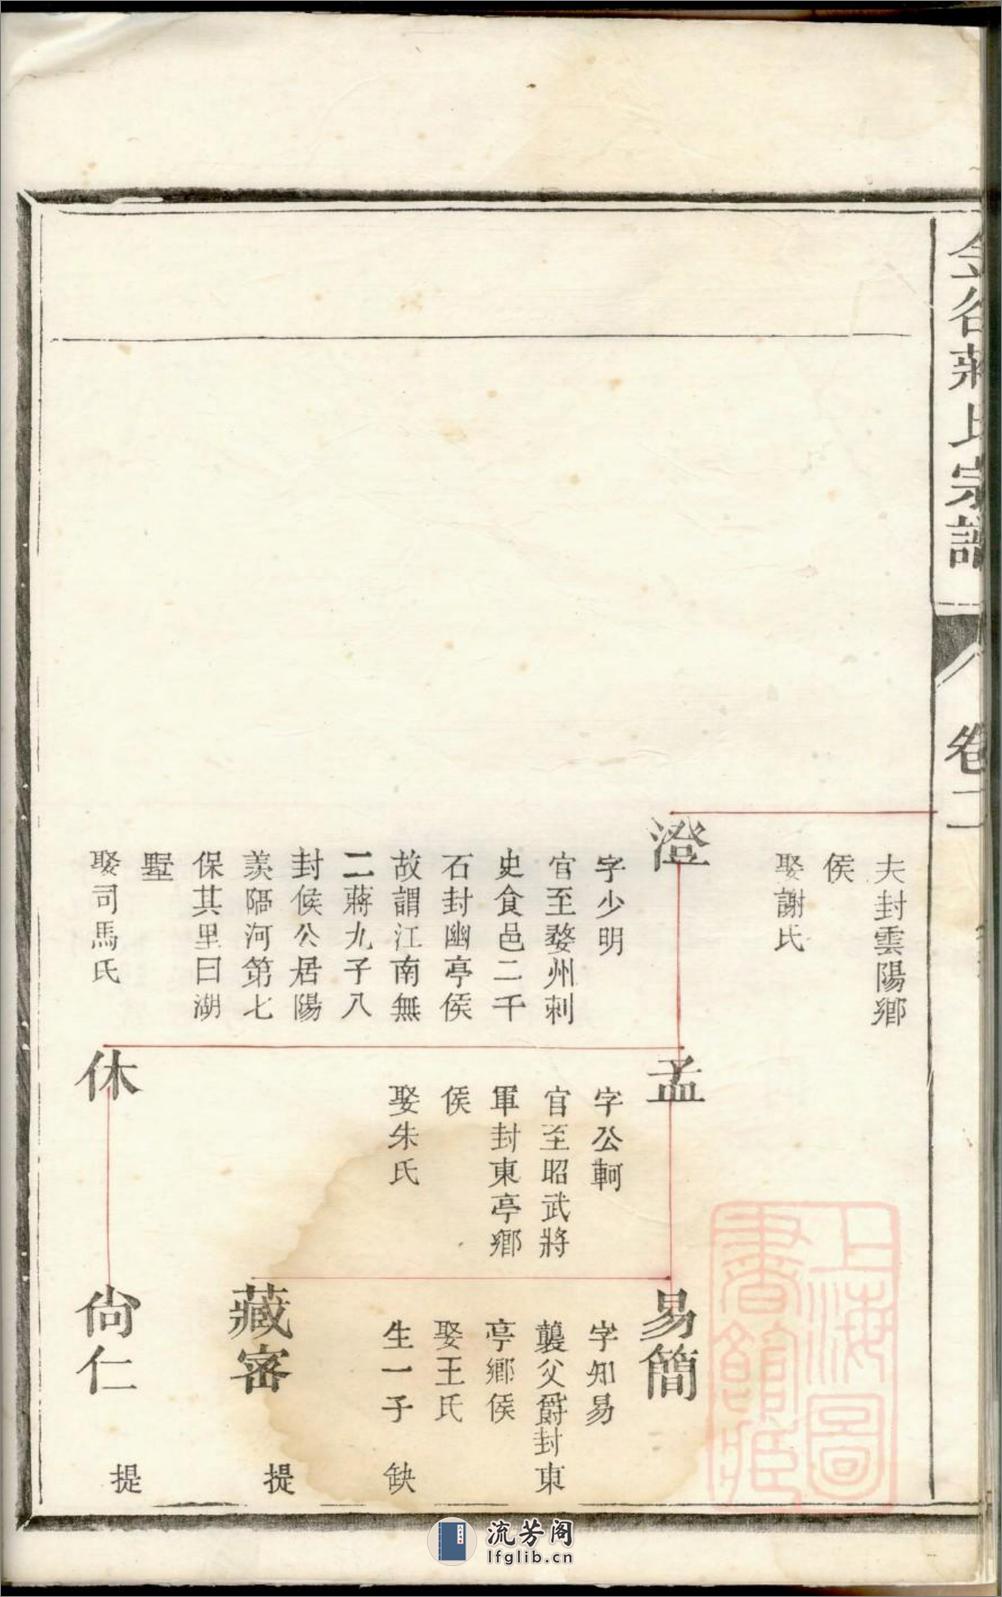 金谷蔣氏宗譜
卷二
夫封雲陽鄉
侯
娶謝氏
澄
字少明
官至婺州刺
史食邑二千
石封幽亭侯
故謂江南無
二蔣九子八
封候公居陽
羨滆河第七
保其里曰湖
墅
娶司馬氏
孟
字公軻
官至昭武將
軍封東亭鄉
侯
娶朱氏
休
易簡
字知易
襲父爵封東
亭鄉侯
娶王氏
生一子 缺
藏審 提
尙仁 提
上海圖
書館藏
流芳阁
lfglib.cn